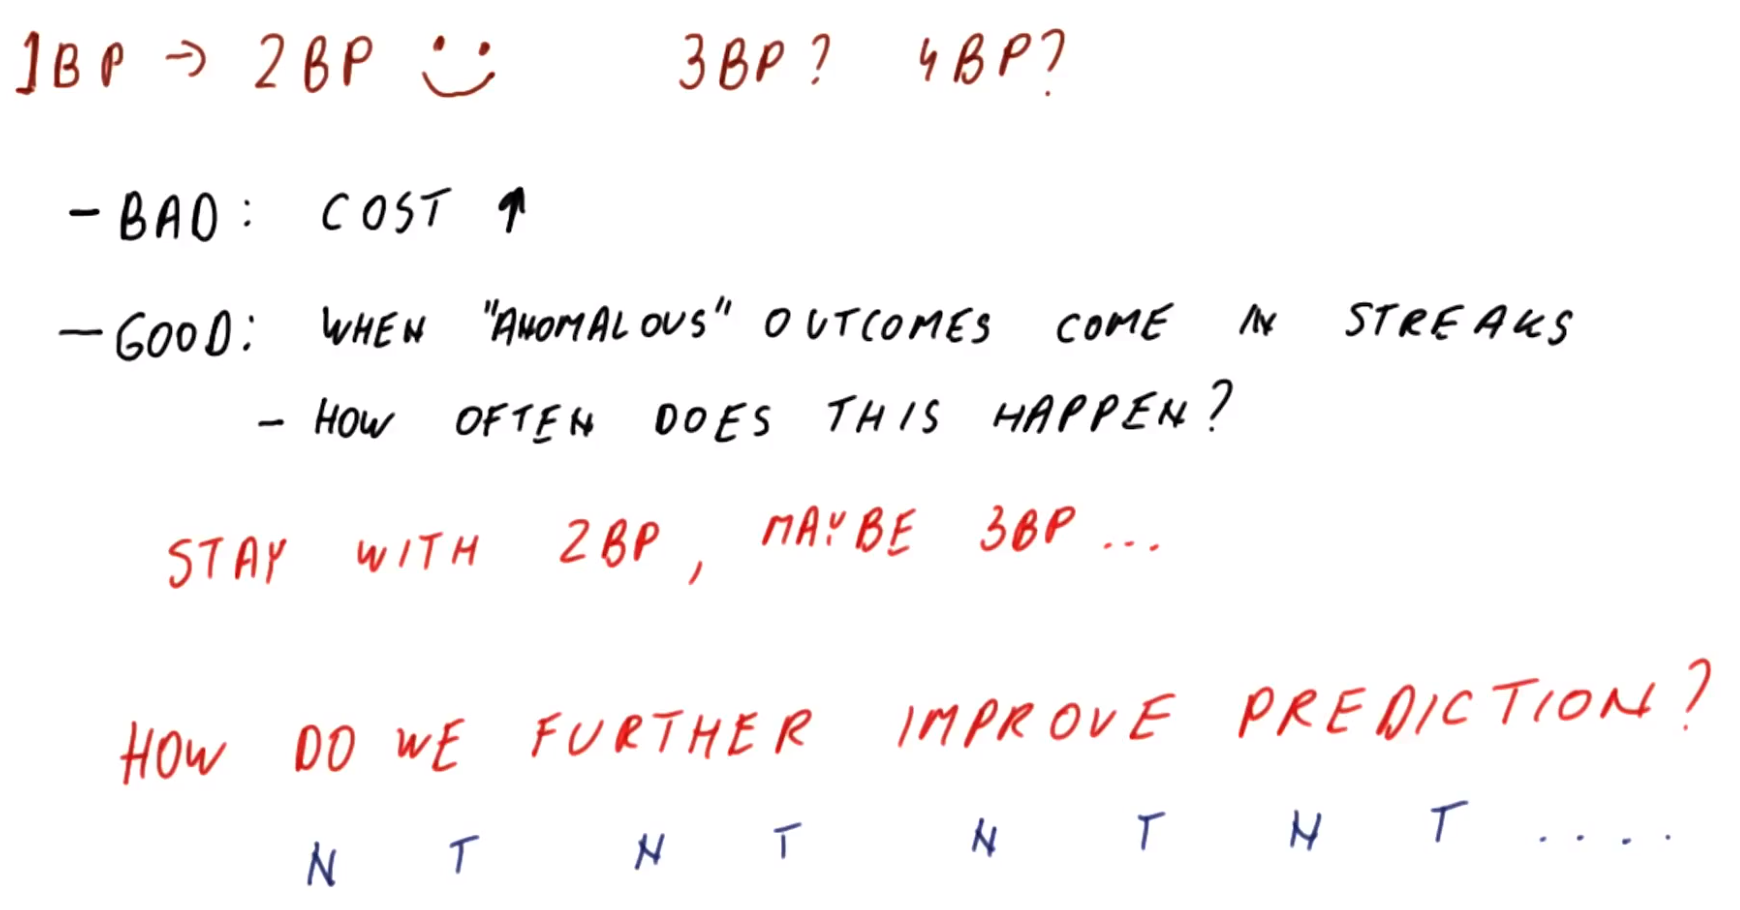 1BP → 2BP 3BP? 4BP?
- BAD: COST ↑
- GOOD: WHEN "ANOMALOUS" OUTCOMES COME IN STREAKS
- HOW OFTEN DOES THIS HAPPEN?
STAY WITH 2BP, MAYBE 3BP ...
HOW DO WE FURTHER IMPROVE PREDICTION?
N T N T N T N T ....